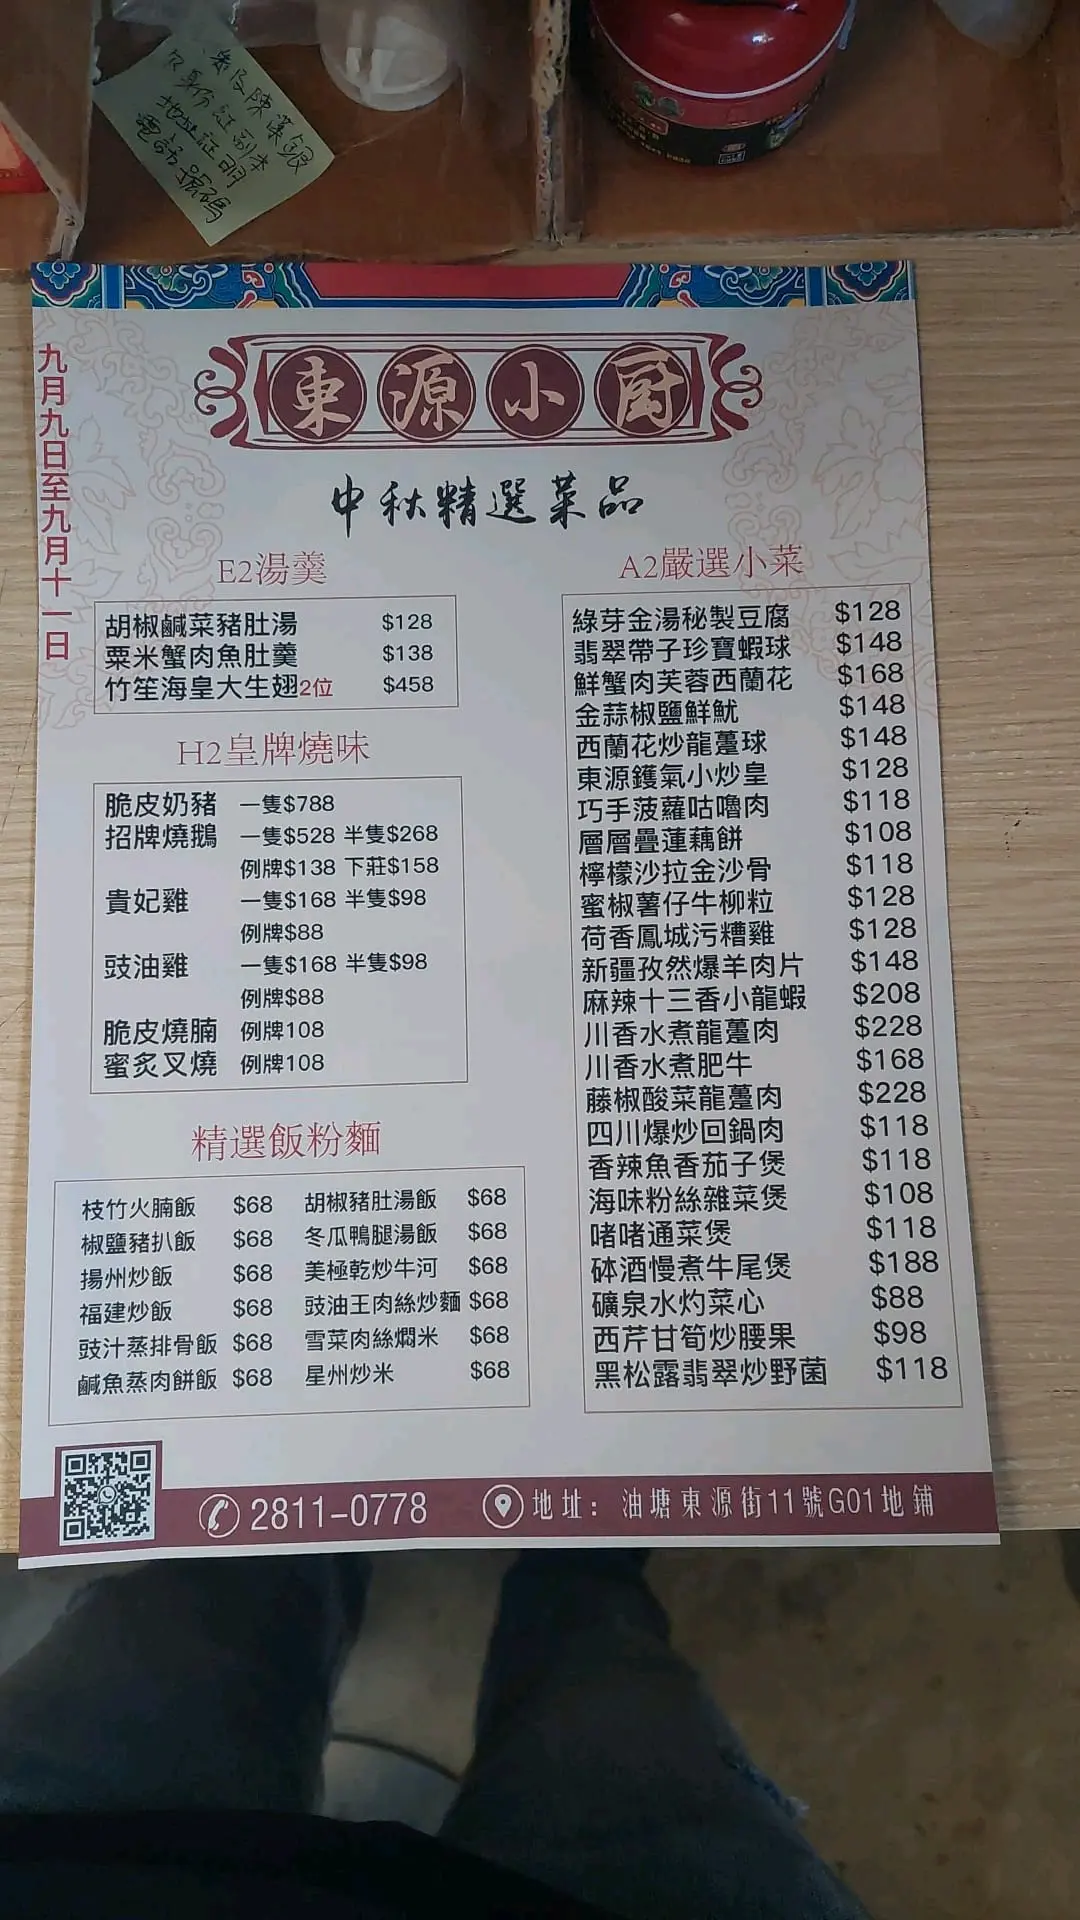 及身份証副本
地址証明
電話號碼
東源小厨
中秋精選菜品
九月九日至九月十一日
E2湯羹
胡椒鹹菜豬肚湯 $128
粟米蟹肉魚肚羹 $138
竹笙海皇大生翅2位 $458
H2皇牌燒味
脆皮奶豬 一隻$788
招牌燒鵝 一隻$528 半隻$268
例牌$138 下莊$158
貴妃雞 一隻$168 半隻$98
例牌$88
豉油雞 一隻$168 半隻$98
例牌$88
脆皮燒腩 例牌108
蜜炙叉燒 例牌108
精選飯粉麵
枝竹火腩飯 $68 胡椒豬肚湯飯 $68
椒鹽豬扒飯 $68 冬瓜鴨腿湯飯 $68
揚州炒飯 $68 美極乾炒牛河 $68
福建炒飯 $68 豉油王肉絲炒麵 $68
豉汁蒸排骨飯 $68 雪菜肉絲燜米 $68
鹹魚蒸肉餅飯 $68 星州炒米 $68
A2嚴選小菜
綠芽金湯秘製豆腐 $128
翡翠帶子珍寶蝦球 $148
鮮蟹肉芙蓉西蘭花 $168
金蒜椒鹽鮮魷 $148
西蘭花炒龍躉球 $148
東源鑊氣小炒皇 $128
巧手菠蘿咕嚕肉 $118
層層疊蓮藕餅 $108
檸檬沙拉金沙骨 $118
蜜椒薯仔牛柳粒 $128
荷香鳳城污糟雞 $128
新疆孜然爆羊肉片 $148
麻辣十三香小龍蝦 $208
川香水煮龍躉肉 $228
川香水煮肥牛 $168
藤椒酸菜龍躉肉 $228
四川爆炒回鍋肉 $118
香辣魚香茄子煲 $118
海味粉絲雜菜煲 $108
啫啫通菜煲 $118
砵酒慢煮牛尾煲 $188
礦泉水灼菜心 $88
西芹甘筍炒腰果 $98
黑松露翡翠炒野菌 $118
2811-0778 地址：油塘東源街11號G01地鋪